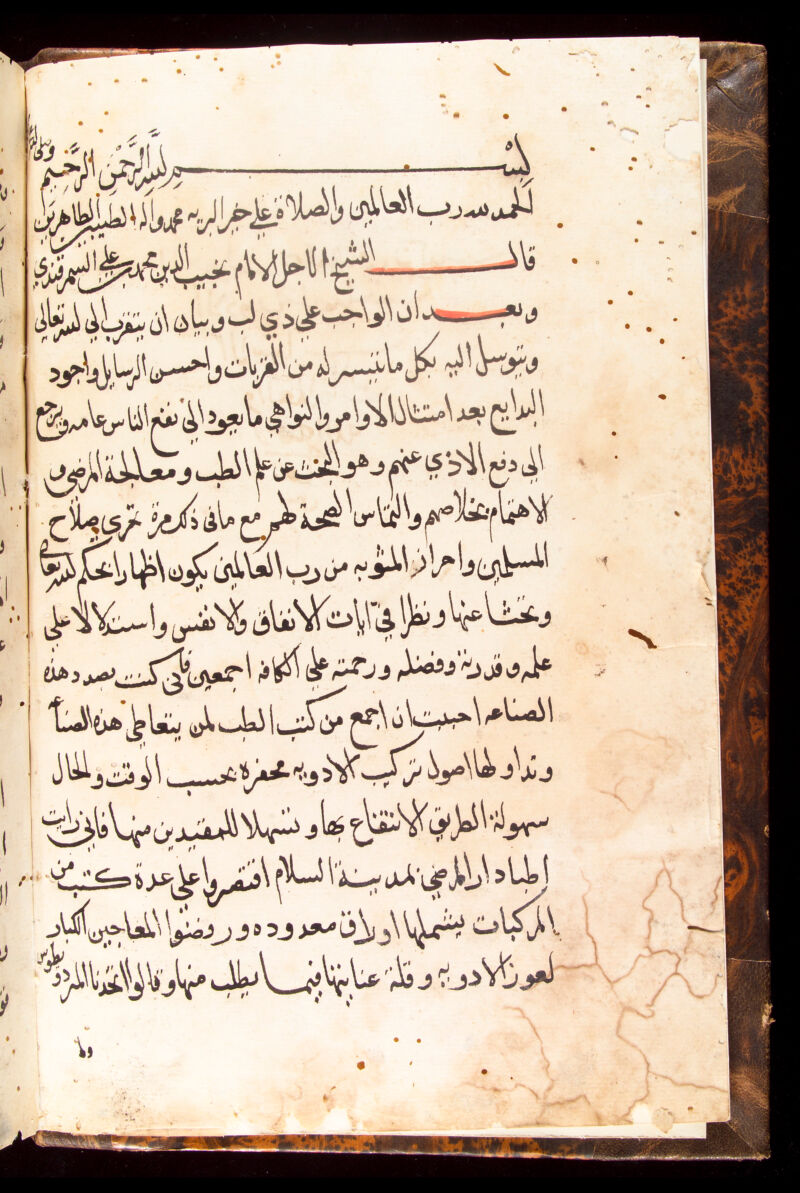 بسم الله الرحمن الرحيم
الحمد لله رب العالمين والصلاة علي خير البريه محمد واله الطيبين الطاهرين
قال الشيخ الاجل الامام نجيب الدين محمد بن علي السمرقندي
وبعد ان الواجب علي ذي لب وبيان ان يتقرب الي الله تعالي
ويتوسل اليه بكل ما تيسر له من القربات واحسن الرسايل واجود
البدايع بعد امتثال الاوامر والنواهي ما يعود الي نفع الناس عامه ويرجع
الي دفع الاذي عنهم وهو البحث عن علم الطب ومعالجة المرضي و
الاهتمام بخلاصهم والتماس الصحة لهم مع ما في ذلك مرة تحري صلاح
المسلمين واحراز المثوبه من رب العالمين يكون اظهارا لحكم الله تعالي
وبحثا عنها ونظرا في ايات الافاق والانفس واستدلالا علي
علمه وقدرته وفضله ورحمته علي الكافه اجمعين فاني كنت بصدد هذه
الصناعه احببت ان اجمع من كتب الطب لمن يتعاطي هذه الصناعه
وتداولها اصول تركيب الادويه محفزه بحسب الوقت والحال
سهولة الطريق الانتفاع بها وتسهلا للمقتدين منها فاني رايت
اطبا دار المرضي بمدينة السلام اقتصروا علي عدة كتب من
المركبات يشملها اوراق معدوده ورفضوا المعاجين الكبار
لعوز الادويه وقلة عنايتها فيما يطلب منها وقالوا اتخذنا المرديطوس
ولا